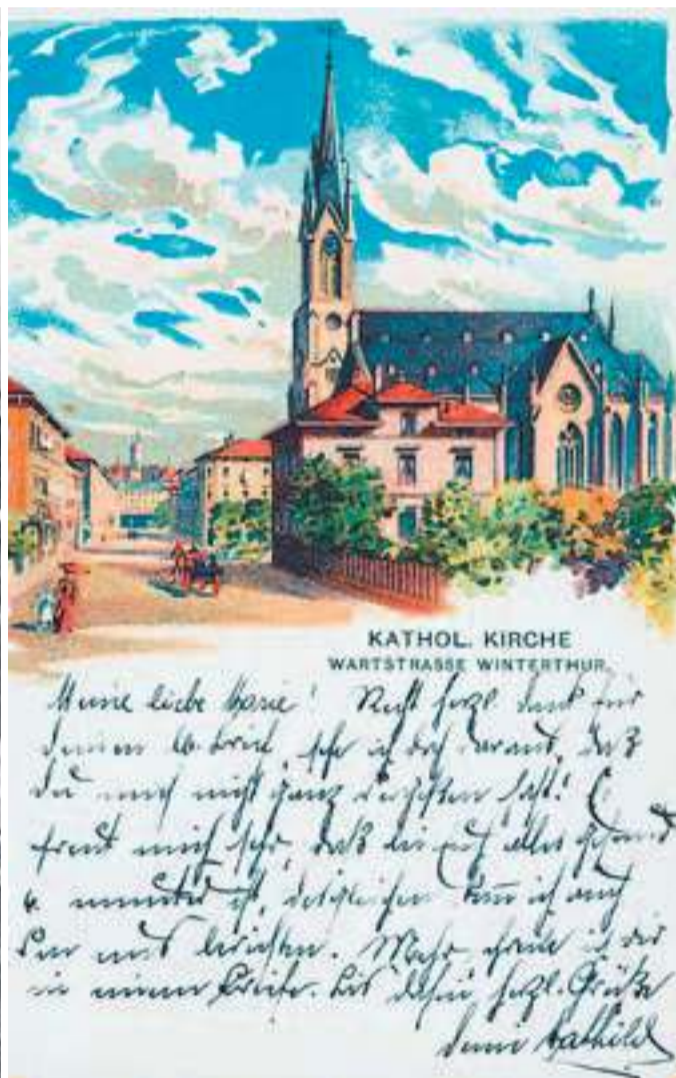 KATHOL. KIRCHE
WARTSTRASSE WINTERTHUR.
Meine liebe Marie! Recht herzl. Dank für
deinen lb. Brief, sehe ich doch daraus, daß
du mich nicht ganz vergessen hast! Es
freut mich sehr, daß bei euch alles gesund
& munter ist, desgleichen kann ich auch
von uns berichten. Mehr schreibe ich dir
in einem Briefe. Bis dahin herzl. Grüße
deine Mathild